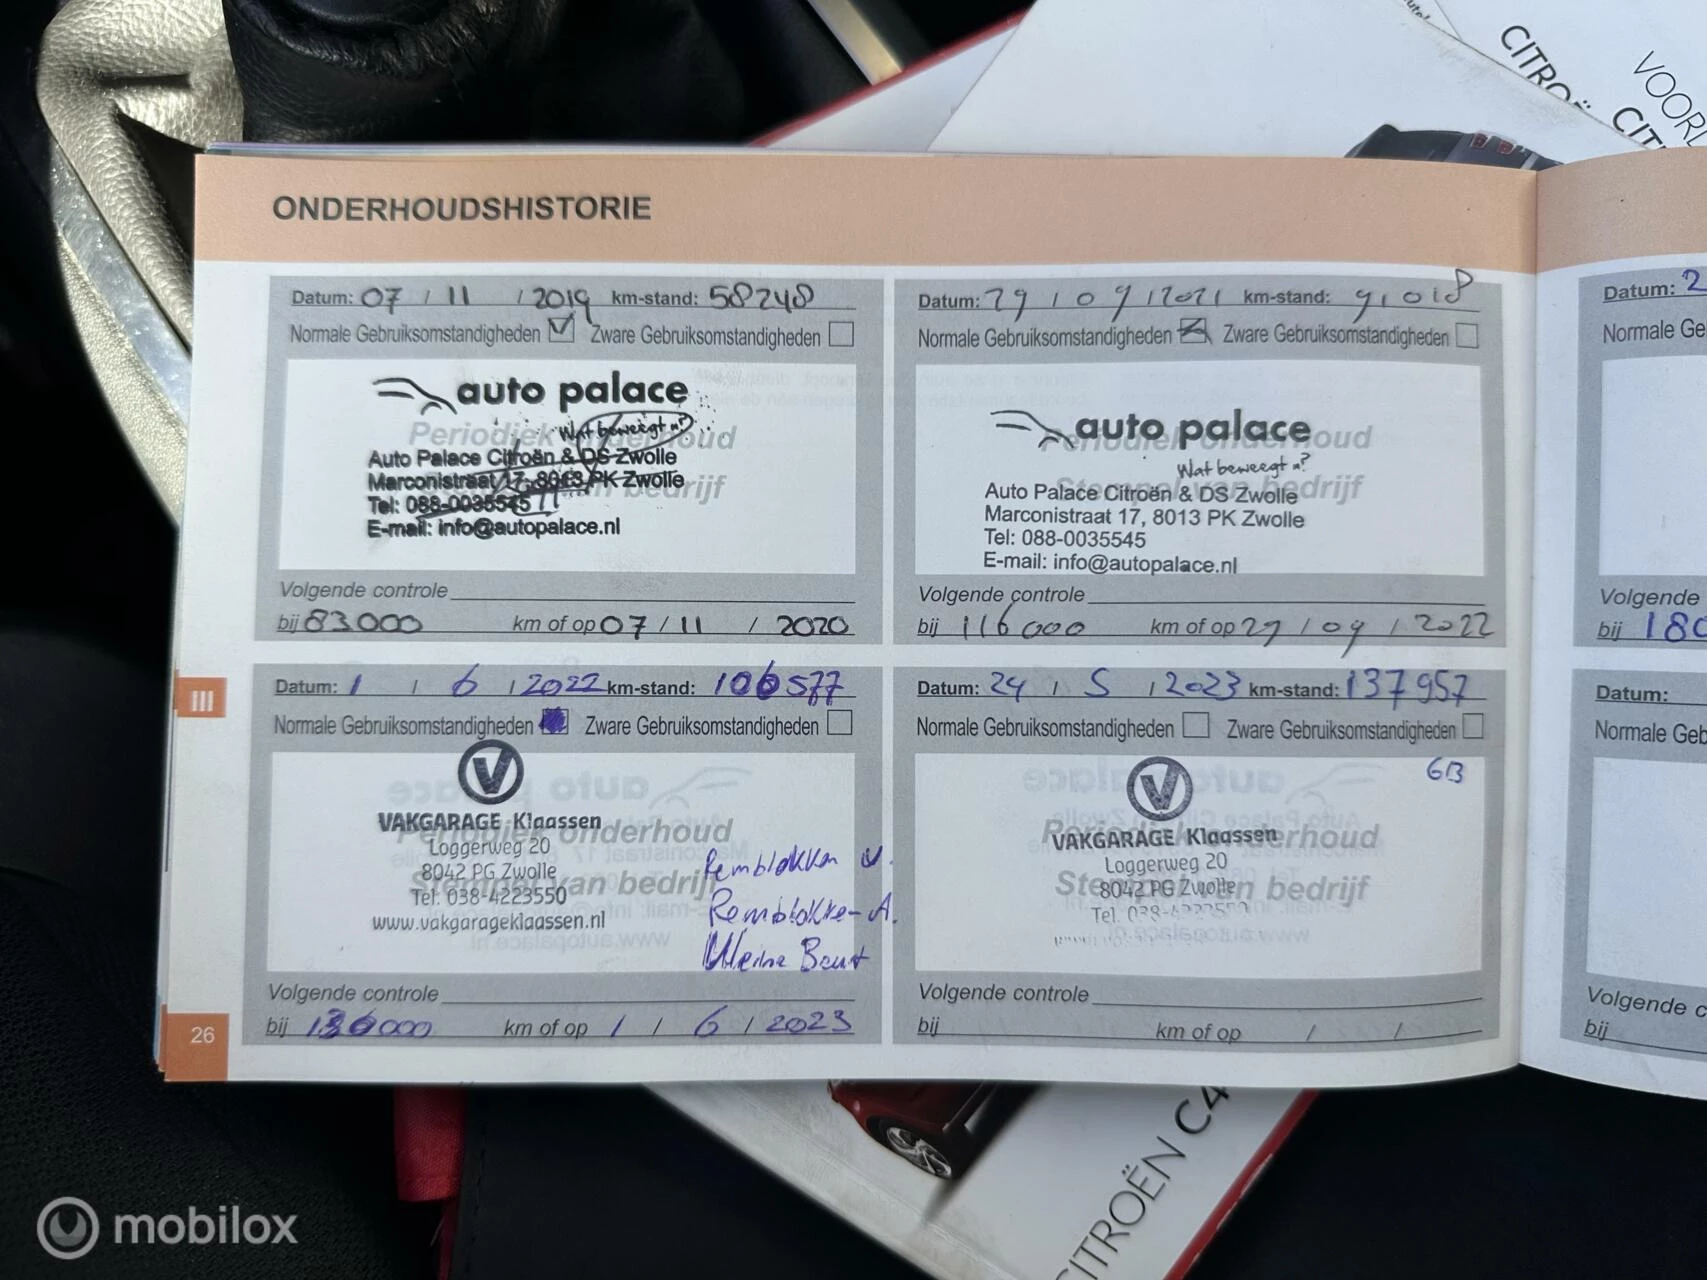 CITROË
CIT
VOORD
ONDERHOUDSHISTORIE
Datum: 07 / 11 / 2019 km-stand: 58248
Normale Gebruiksomstandigheden Zware Gebruiksomstandigheden
auto palace
Wat beweegt u?
Periodiek onderhoud
Auto Palace Citroën & DS Zwolle
Marconistraat 17, 8013 PK Zwolle
Tel: 088-0035545
E-mail: info@autopalace.nl
Volgende controle
bij 83000 km of op 07 / 11 / 2020
Datum: 29 / 09 / 2021 km-stand: 91018
Normale Gebruiksomstandigheden Zware Gebruiksomstandigheden
auto palace
Wat beweegt u?
Stempel van bedrijf
Auto Palace Citroën & DS Zwolle
Marconistraat 17, 8013 PK Zwolle
Tel: 088-0035545
E-mail: info@autopalace.nl
Volgende controle
bij 116000 km of op 29 / 09 / 2022
Datum: 1 / 6 / 2022 km-stand: 106577
Normale Gebruiksomstandigheden Zware Gebruiksomstandigheden
VAKGARAGE Klaassen
Periodiek onderhoud
Loggerweg 20
8042 PG Zwolle
Stempel van bedrijf
Tel. 038-4223550
www.vakgarageklaassen.nl
Remblokken v.
Remblokke- A.
Kleine Beurt
Volgende controle
bij 136000 km of op 1 / 6 / 2023
Datum: 24 / 5 / 2023 km-stand: 137957
Normale Gebruiksomstandigheden Zware Gebruiksomstandigheden
GB
VAKGARAGE Klaassen
Periodiek onderhoud
Loggerweg 20
8042 PG Zwolle
Stempel van bedrijf
Tel. 038-4223550
Volgende controle
bij km of op / /
III
26
Datum: 2
Normale Ge
Volgende
bij 180
Datum:
Normale Geb
Volgende c
bij
CITROËN C4
mobilox